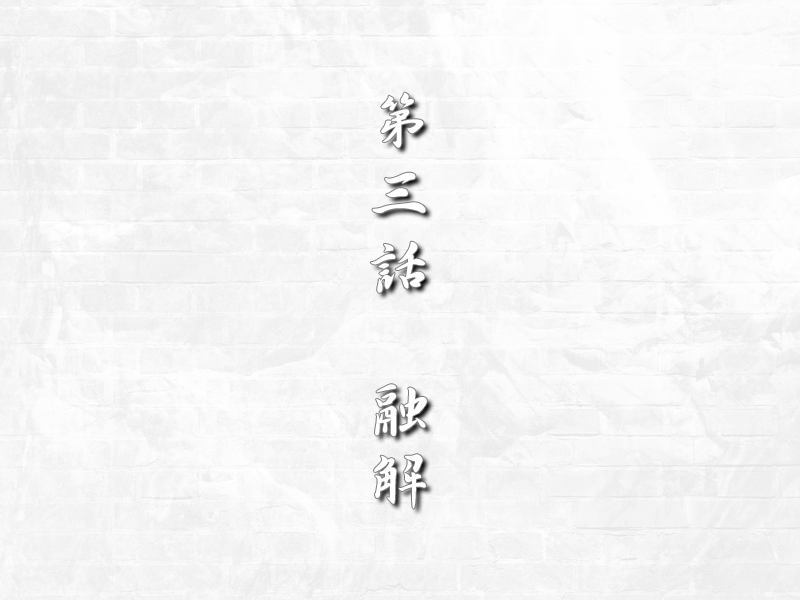 第三話　融解